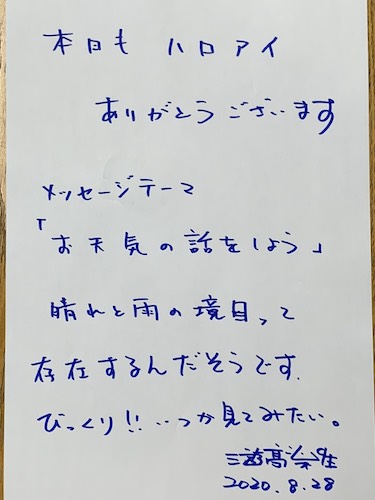 本日も ハロアイ
ありがとうございます
メッセージテーマ
「お天気の話をしよう」
晴れと雨の境目って
存在するんだそうです.
びっくり!! いつか見てみたい。
三遊亭
2020.8.28